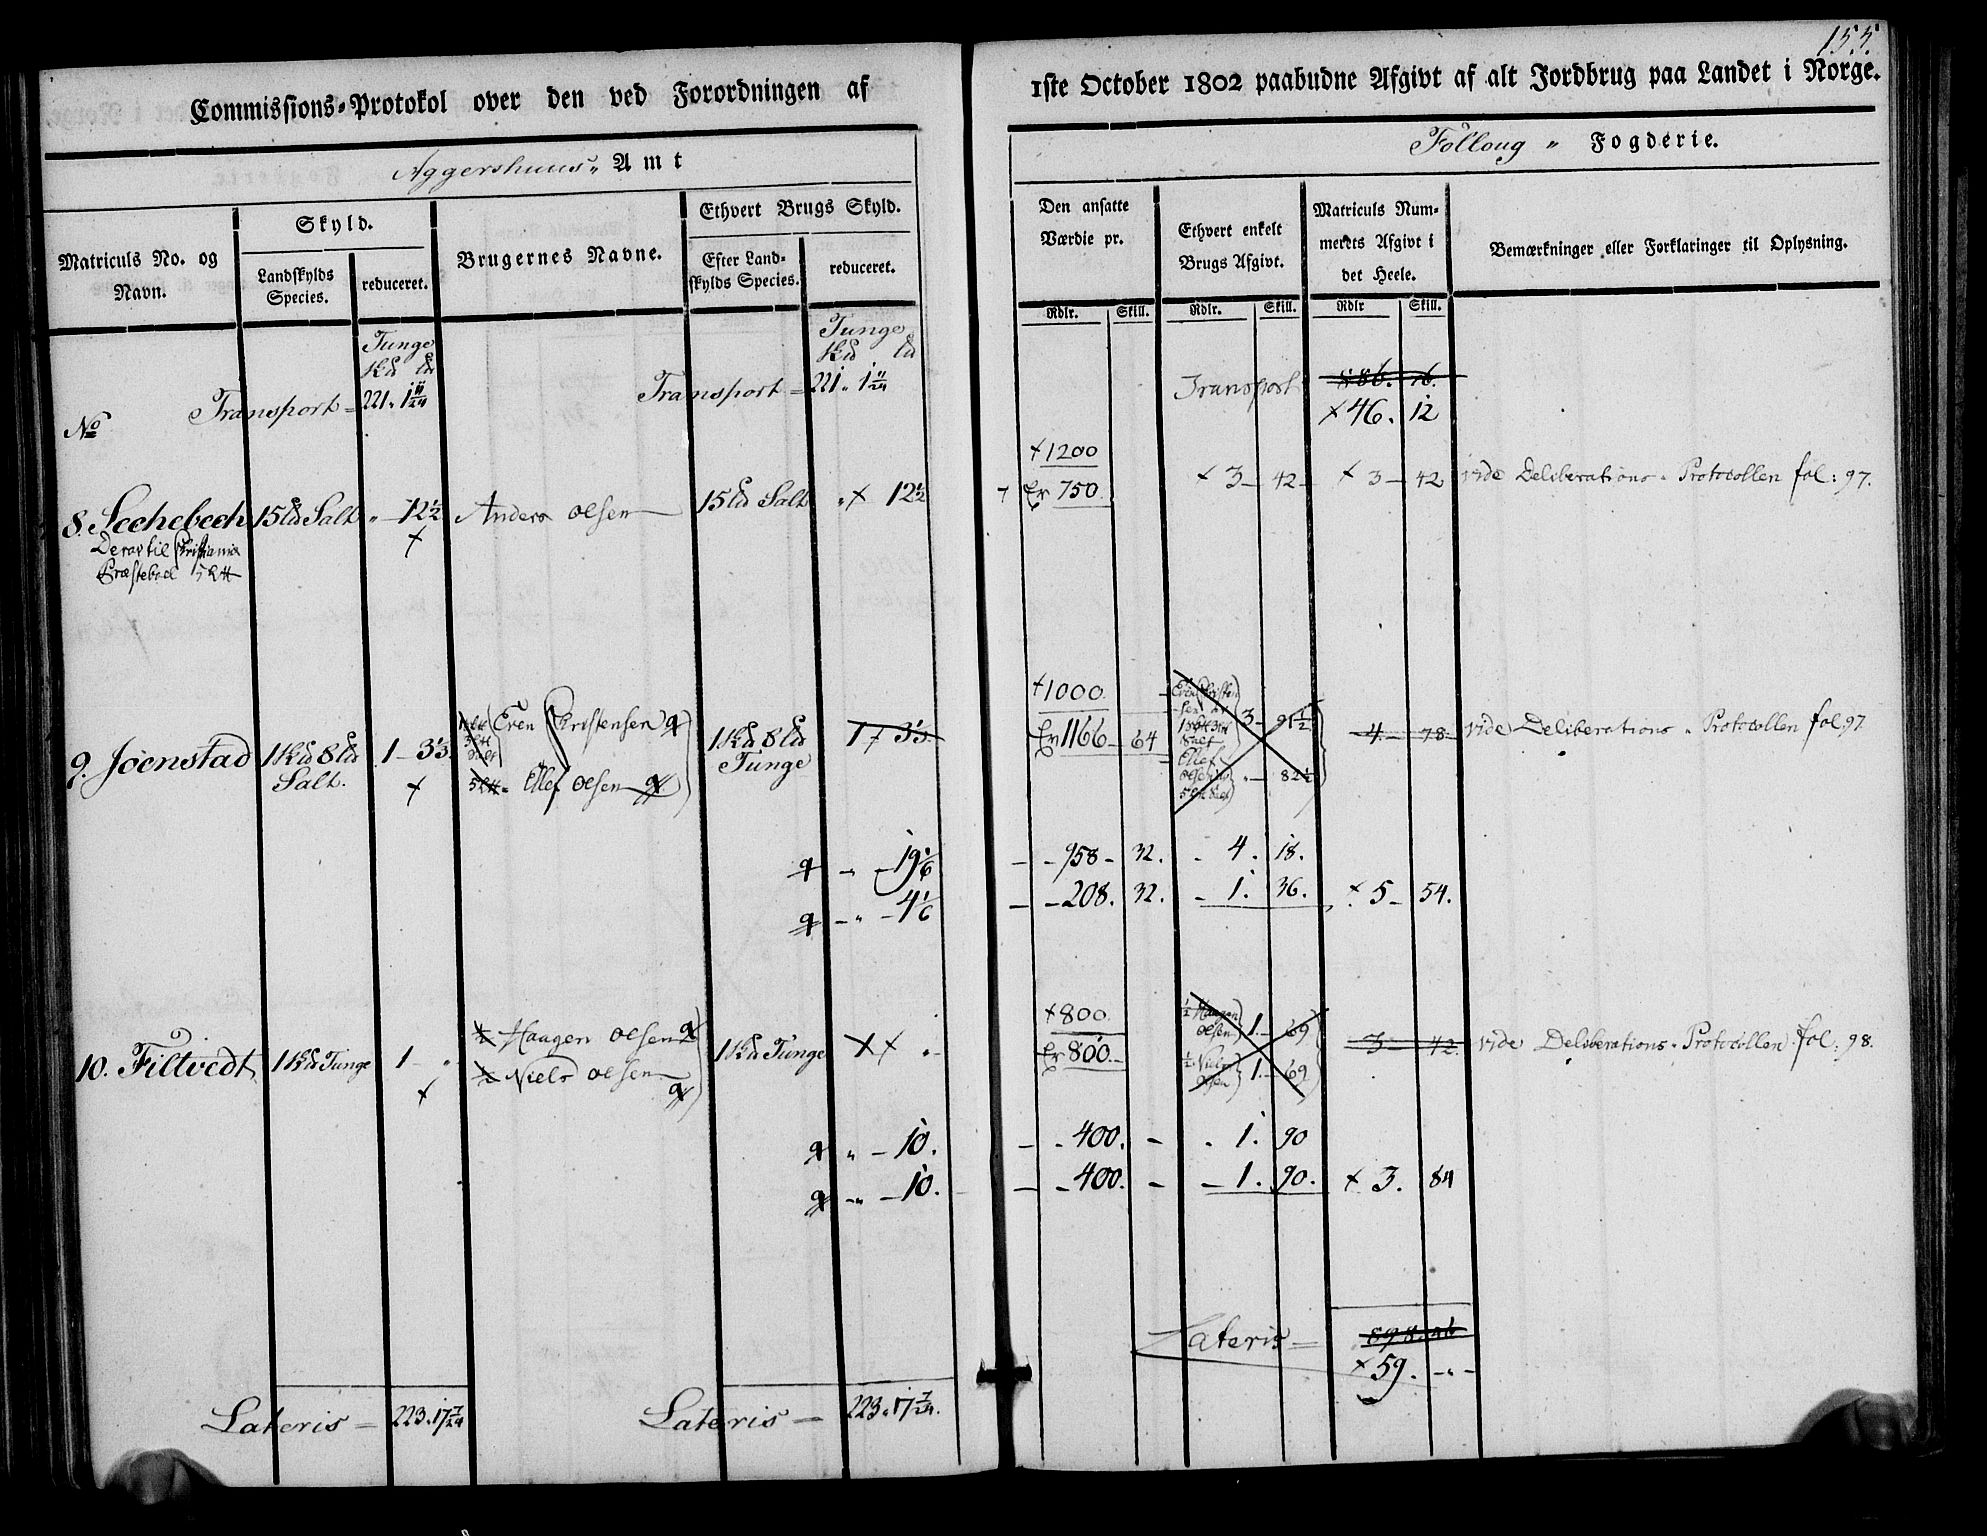 155.
Commissions-Protokol over den ved Forordningen af
1ste October 1802 paabudne Afgivt af alt Jordbrug paa Landet i Norge.
Aggershuus" Amt
Folloug " Fogderie.
Matriculs No. og Navn.
Skyld.
Landskylds Species.
reduceret.
Brugernes Navne.
Ethvert Brugs Skyld.
Efter Landskylds Species.
reduceret.
Den ansatte Værdie pr.
Rdlr. Skill.
Ethvert enkelt Brugs Afgivt.
Rdlr. Skill.
Matriculs Nummerets Afgivt i det Heele.
Rdlr Skill.
Bemærkninger eller Forklaringer til Oplysning.
Tunge
Tunge
No
Transport = 221. 1 11/24
Transport = 221. 1 11/24
Transport
+ 46. 12
+ 1200
8. 15 Salt " - 12 1/2 Anders Olsen 15 Salt " + 12 1/2 Er 750. + 3 - 42 - + 3 - 42 vide Deliberations-Protocollen fol: 97.
Deraf til Christiania
Præsteboel 5
+ 1000.
9. Joenstad 1 8 Salt. 1 - 3 1/3. Even Christensen 1 8 Tunge 1 + 3 1/3. Er 1166 - 64 3 - 91 1/2 4 - 78 - vide Deliberations-Protocollen fol: 97
Ellef Olsen " - 82 1/2
" - 19 1/6 - 958 - 32. - 4. 18.
- " - 4 1/6 - 208. 32. - 1. 36. + 5 - 54.
+ 800.
10. Filtvedt 1 Tunge 1 - " 1/2 Haagen Olsen 1 Tunge Er 800. - 1/2 Haagen Olsen 1. - 69 3 - 42. vide Deliberations-Protocollen fol: 98.
1/2 Niels Olsen 1/2 Niels Olsen 1. - 69
" - 10. - 400. - 1. 90
- " - 10. - 400. - 1. 90. + 3. 84
Lateris =
+ 59. - " -
Lateris = 223. 17 7/24
Lateris = 223. 17 7/24.